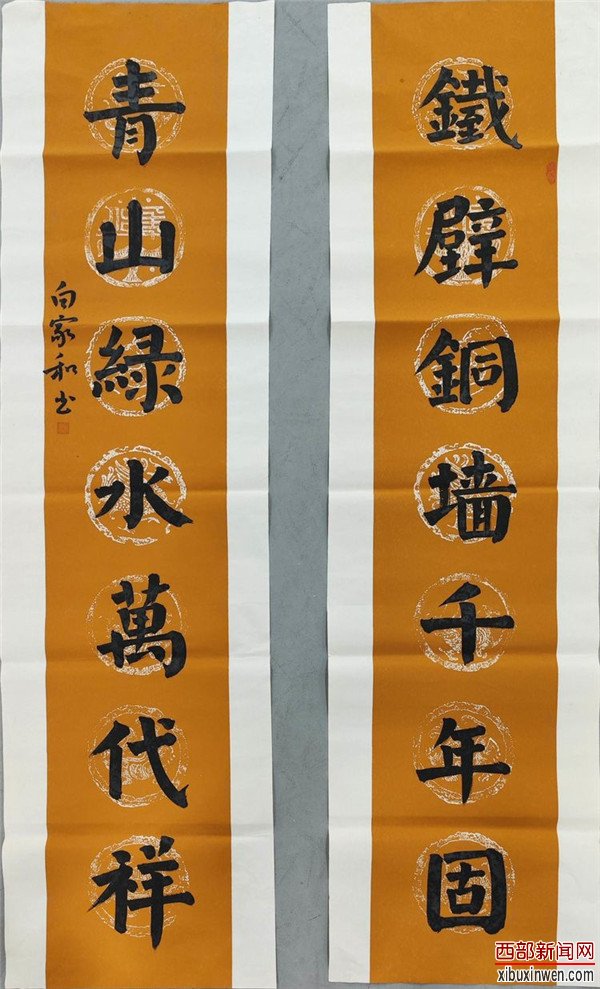 鐵壁銅墙千年固
青山緑水萬代祥
向家和书
西部新闻网
xibuxinwen.com